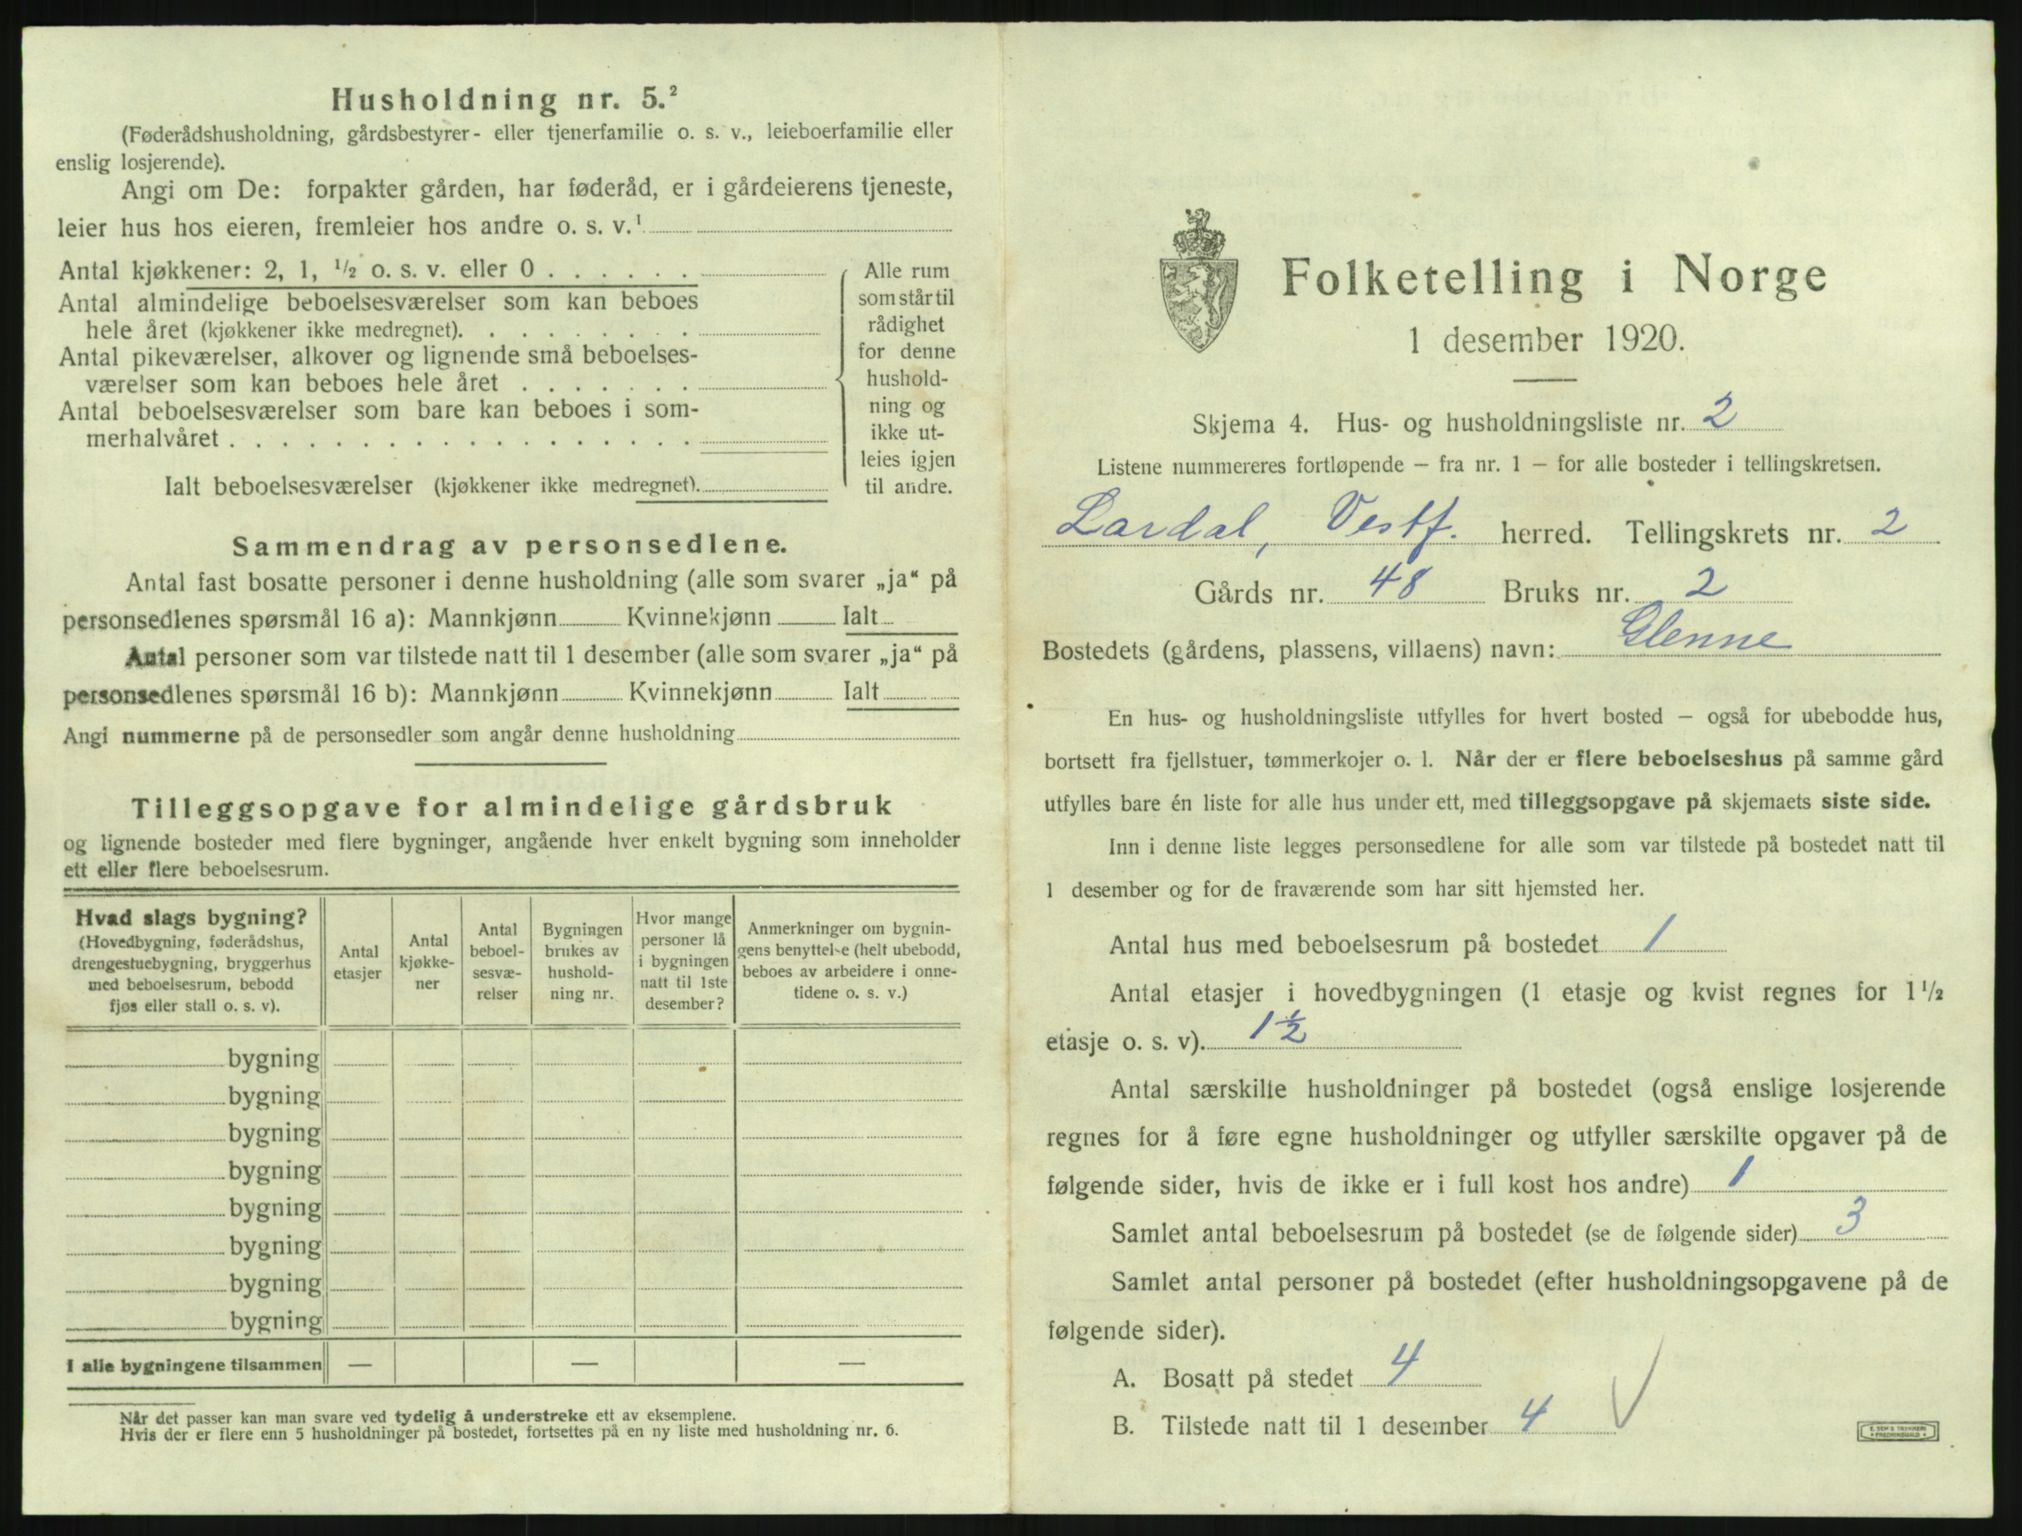 Husholdning nr. 5.²
(Føderådshusholdning, gårdsbestyrer- eller tjenerfamilie o. s. v., leieboerfamilie eller
enslig losjerende).
Angi om De: forpakter gården, har føderåd, er i gårdeierens tjeneste,
leier hus hos eieren, fremleier hos andre o. s. v.¹
Antal kjøkkener: 2, 1, ½ o. s. v. eller 0 . . . . . .
Antal almindelige beboelsesværelser som kan beboes
hele året (kjøkkener ikke medregnet). . . . . . . . .
Antal pikeværelser, alkover og lignende små beboelses-
værelser som kan beboes hele året . . . . . . .
Antal beboelsesværelser som bare kan beboes i som-
merhalvåret . . . . . . . . . . . . . . . . . .
Ialt beboelsesværelser (kjøkkener ikke medregnet).
Alle rum
som står til
rådighet
for denne
hushold-
ning og
ikke ut-
leies igjen
til andre.
Sammendrag av personsedlene.
Antal fast bosatte personer i denne husholdning (alle som svarer „ja“ på
personsedlenes spørsmål 16 a): Mannkjønn Kvinnekjønn Ialt
Antal personer som var tilstede natt til 1 desember (alle som svarer „ja“ på
personsedlenes spørsmål 16 b): Mannkjønn Kvinnekjønn Ialt
Angi nummerne på de personsedler som angår denne husholdning
Tilleggsopgave for almindelige gårdsbruk
og lignende bosteder med flere bygninger, angående hver enkelt bygning som inneholder
ett eller flere beboelsesrum.
Hvad slags bygning?
(Hovedbygning, føderådshus,
drengestuebygning, bryggerhus
med beboelsesrum, bebodd
fjøs eller stall o. s. v).
Antal
etasjer
Antal
kjøkke-
ner
Antal
beboel-
sesvæ-
relser
Bygningen
brukes av
hushold-
ning nr.
Hvor mange
personer lå
i bygningen
natt til 1ste
desember?
Anmerkninger om bygnin-
gens benyttelse (helt ubebodd,
beboes av arbeidere i onne-
tidene o. s. v.)
bygning
bygning
bygning
bygning
bygning
bygning
bygning
bygning
I alle bygningene tilsammen — — —
Når det passer kan man svare ved tydelig å understreke ett av eksemplene.
Hvis der er flere enn 5 husholdninger på bostedet, fortsettes på en ny liste med husholdning nr. 6.
Folketelling i Norge
1 desember 1920.
Skjema 4. Hus- og husholdningsliste nr. 2
Listene nummereres fortløpende — fra nr. 1 — for alle bosteder i tellingskretsen.
Lardal, Vestf. herred. Tellingskrets nr. 2
Gårds nr. 48 Bruks nr. 2
Bostedets (gårdens, plassens, villaens) navn: Glenne
En hus- og husholdningsliste utfylles for hvert bosted — også for ubebodde hus,
bortsett fra fjellstuer, tømmerkojer o. l. Når der er flere beboelseshus på samme gård
utfylles bare én liste for alle hus under ett, med tilleggsopgave på skjemaets siste side.
Inn i denne liste legges personsedlene for alle som var tilstede på bostedet natt til
1 desember og for de fraværende som har sitt hjemsted her.
Antal hus med beboelsesrum på bostedet 1
Antal etasjer i hovedbygningen (1 etasje og kvist regnes for 1½
etasje o. s. v). 1½
Antal særskilte husholdninger på bostedet (også enslige losjerende
regnes for å føre egne husholdninger og utfyller særskilte opgaver på de
følgende sider, hvis de ikke er i full kost hos andre) 1
Samlet antal beboelsesrum på bostedet (se de følgende sider) 3
Samlet antal personer på bostedet (efter husholdningsopgavene på de
følgende sider).
A. Bosatt på stedet 4
B. Tilstede natt til 1 desember 4